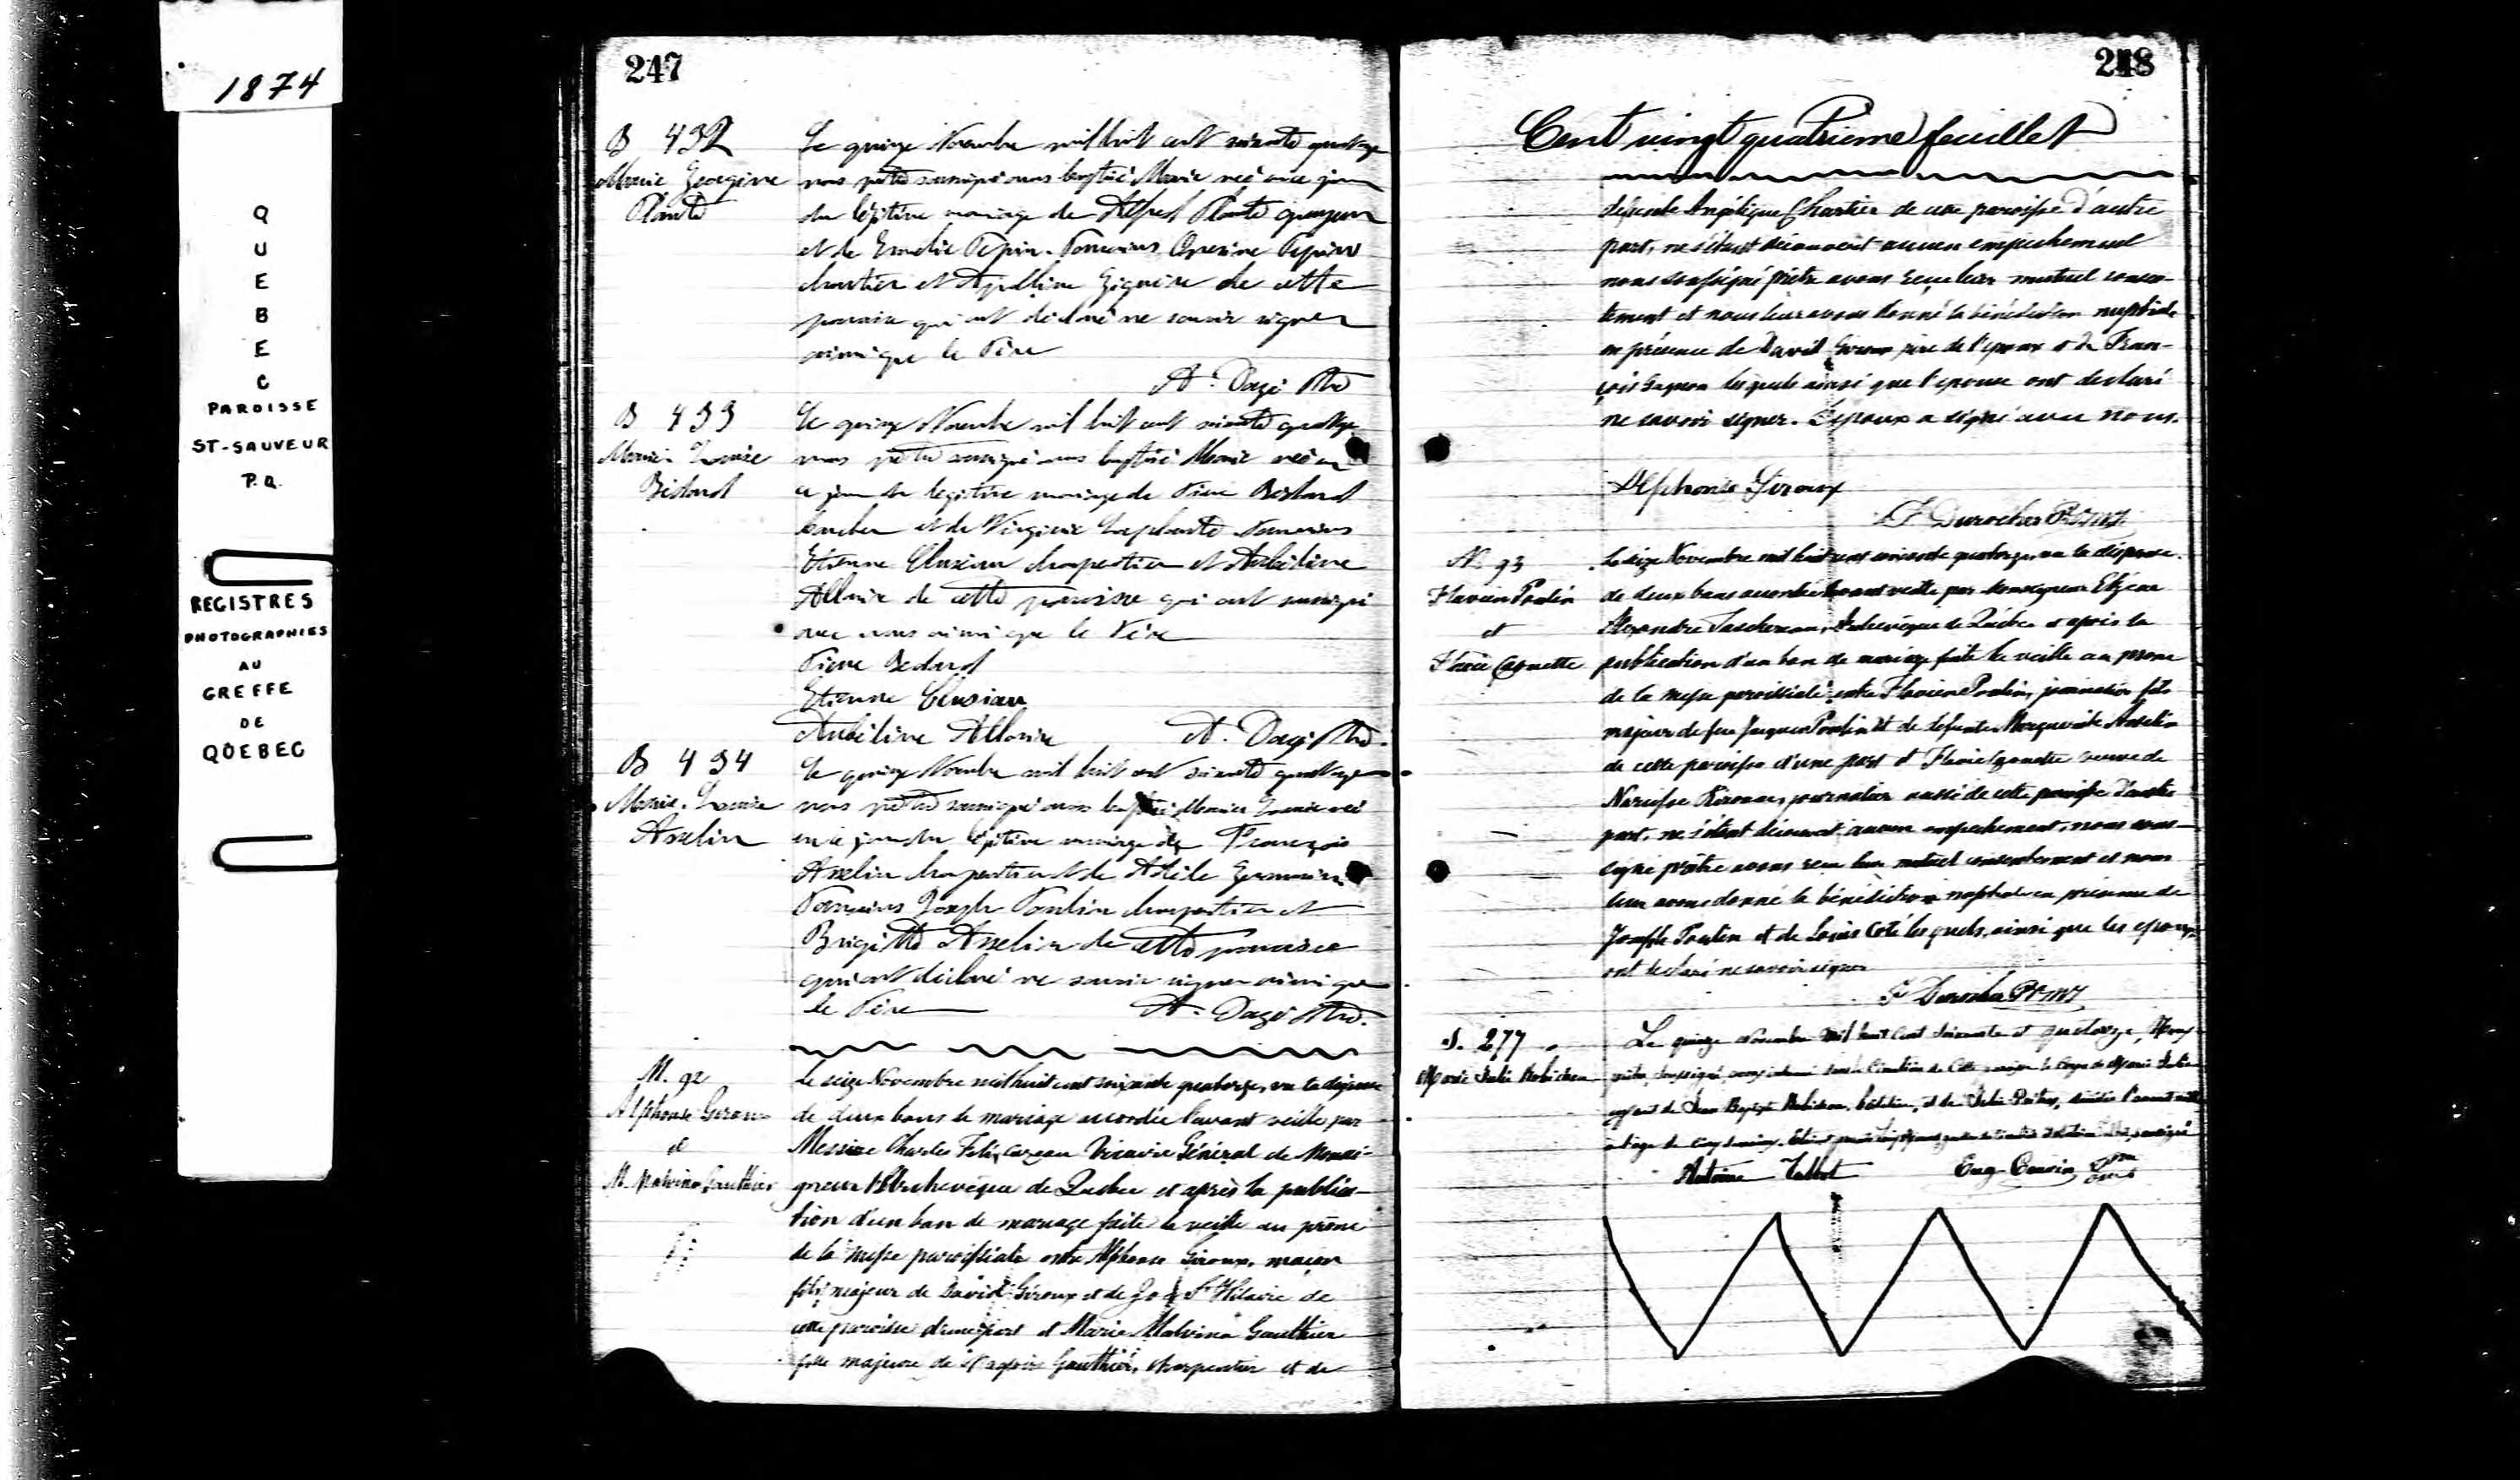 1874
QUEBEC
PAROISSE
ST-SAUVEUR
P.Q.
REGISTRES
PHOTOGRAPHIES
AU
GREFFE
DE
QUEBEC
247
B 432
Marie Georgine
Planté
Le quinze Novembre mil huit cent soixante quatorze
nous prêtre soussigné avons baptisé Marie née ce jour
du légitime mariage de Alfred Planté
et de Emelie Pepin. Parrains Onesime Pepin
charretier et Apolline Giguère de cette
paroisse qui ont déclaré ne savoir signer
ainsi que le Père
A. Ptre
B 433
Marie Louise
Bédard
Le quinze Novembre mil huit cent soixante quatorze
nous prêtre soussigné avons baptisé Marie née en
ce jour du légitime mariage de Pierre Bédard
et de Virginie Laplante Parrains
Etienne Clusiau charpentier et
Allaire de cette paroisse qui ont soussigné
avec nous ainsi que le Père
Pierre Bedard
Etienne Clusiau
Allaire A. Ptre.
B 434
Marie Louise
Asselin
Le quinze Novembre mil huit cent soixante quatorze
nous prêtre soussigné avons baptisé Marie Louise née
en ce jour du légitime mariage de François
Asselin charpentier et de Adéle Germain
Parrains Joseph Poulin charpentier et
Brigitte Asselin de cette paroisse
qui ont déclaré ne savoir signer ainsi que
le Père A. Ptre.
M. 92
Alphonse Giroux
et
M. Malvina Gauthier
Le seize Novembre mil huit cent soixante quatorze, vu la dispense
de deux bans de mariage accordée l'avant veille par
Messire Charles Félix Cazeau Vicaire Général de Monsei-
gneur l'Archevêque de Québec et après la publica-
tion d'un ban de mariage faite la veille au prône
de la messe paroissiale entre Alphonse Giroux, maçon
fils majeur de David Giroux et de St Hilaire de
cette paroisse d'une part et Marie Malvina Gauthier
fille majeure de Gauthier, charpentier et de
248
Cent vingt quatrieme feuillet
defunte Angélique Chartier de cette paroisse d'autre
part, ne s'étant découvert aucun empechement
nous soussigné prêtre avons reçu leur mutuel consen-
tement et nous leur avons donné la bénédiction nuptiale
en présence de David Giroux père de l'epoux et de Fran-
çois Gagnon lesquels ainsi que l'epouse ont declaré
ne savoir signer. L'epoux a signé avec nous.
Alphonse Giroux
F. Durocher Ptre OMI
M. 93
Flavien Poulin
et
Flavie Caouette
Le seize Novembre mil huit cent soixante quatorze, vu la dispense
de deux bans accordée l'avant veille par Monseigneur Elzéar
Alexandre Taschereau, Archevêque de Québec et après la
publication d'un ban de mariage faite la veille au prône
de la messe paroissiale entre Flavien Poulin, journalier fils
majeur de feu Jacques Poulin et de defunte Marguerite Asselin
de cette paroisse d'une part et Flavie Caouette veuve de
Narcisse journalier aussi de cette paroisse d'autre
part, ne s'étant découvert aucun empechement, nous sous-
signé prêtre avons reçu leur mutuel consentement et nous
leur avons donné la bénédiction nuptiale en présence de
Joseph Poulin et de Louis Coté lesquels, ainsi que les epoux
ont declaré ne savoir signer
F. Durocher Ptre OMI
S. 277
Marie Julie Robichau
Le quinze Novembre mil huit cent soixante et quatorze, Nous
prêtre, soussigné, avons inhumé dans le Cimetière de cette paroisse le corps de Marie Julie
enfant de Jean Baptiste et de Julie décédée l'avant veille
à l'age de cinq semaines.
Antoine Talbot